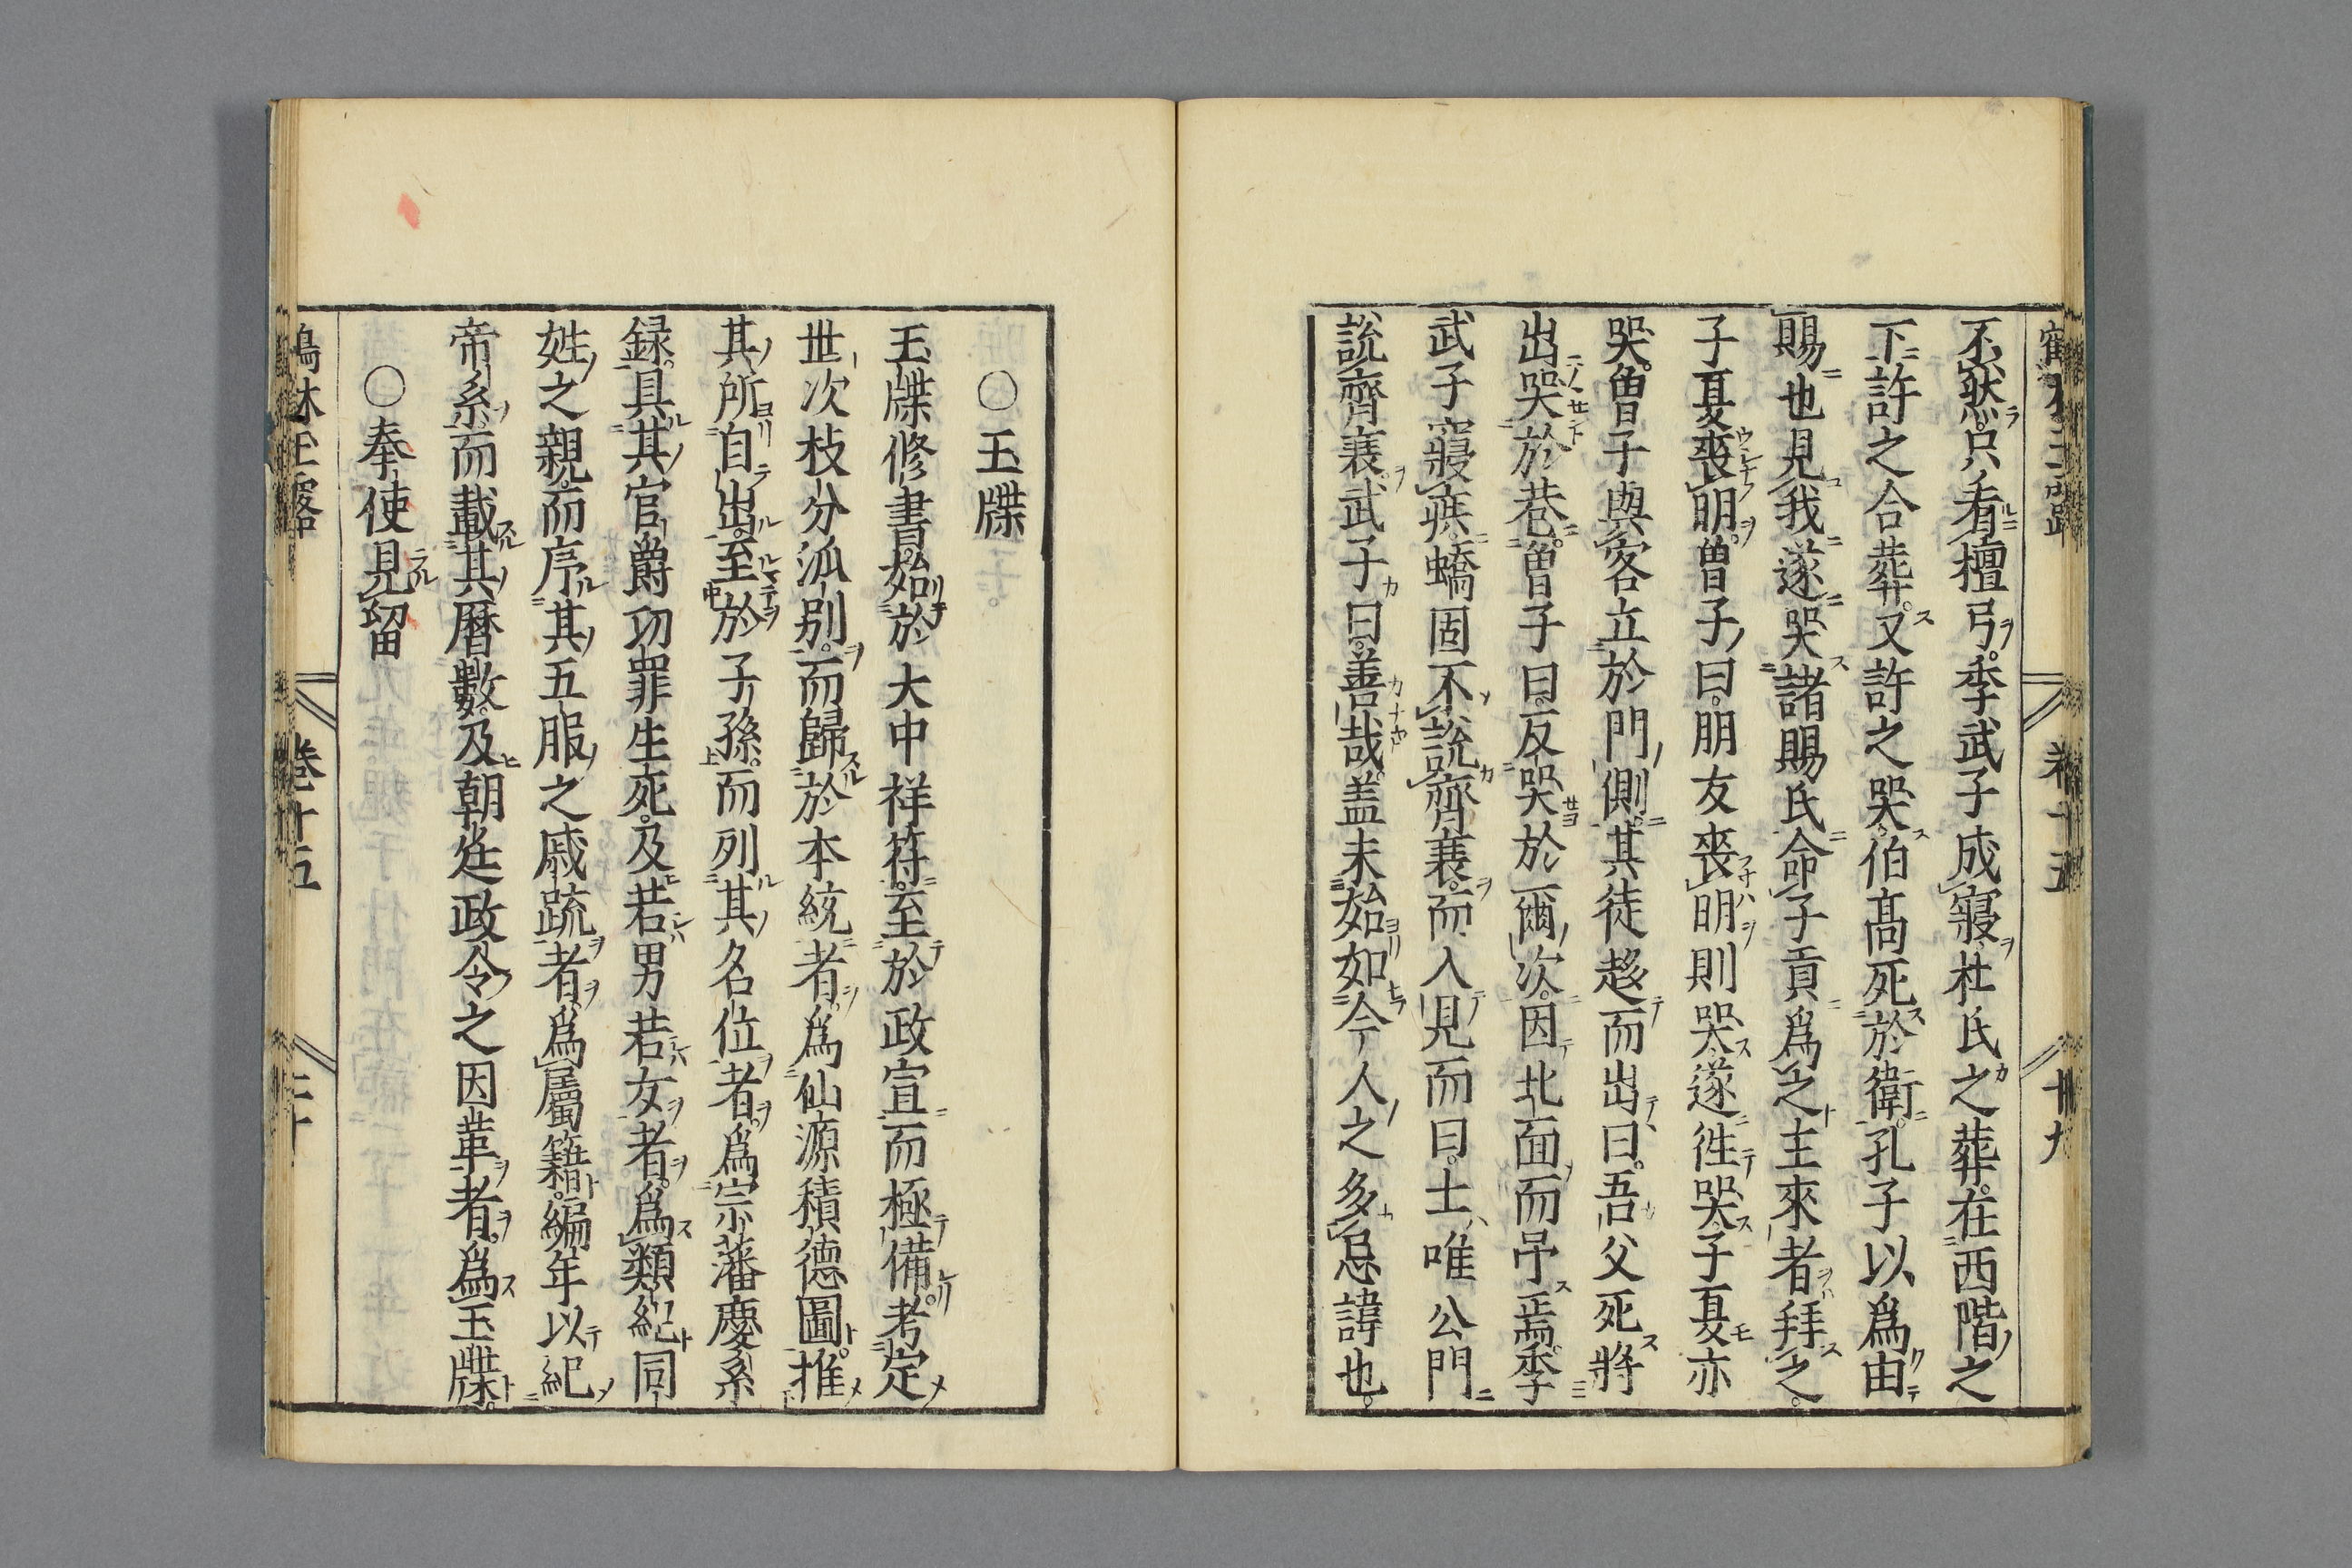 不然。只看檀弓。季武子成寢杜氏之葬。在西階之
下許之合葬。又許之哭。伯髙死於衛。孔子以爲由
賜也見我遂哭諸賜氏命子貢爲之主來者拜之。
子夏喪明。曽子曰。朋友喪明則哭。遂徃哭子夏亦
哭。曽子與客立於門側。其徒趍而出曰。吾父死將
出哭於巷。曽子曰。反哭於爾次。因北面而吊焉。季
武子寢疾。蟜固不說齊衰。而入見而曰。士唯公門
說齊衰。武子曰。善哉。盖未始如今人之多忌諱也。
卷十五
十九
〇玉牒
玉牒修書。始於大中祥符。至於政宣而極備。考定
世次枝分派別。而歸於本統者。爲仙源積德圖。推
其所自出。至於子孫。而列其名位者。爲宗藩慶系
録。具其官爵功罪生死。及若男若女者。爲類紀同
姓之親。而序其五服之戚疏者。爲屬籍。編年以紀
帝系。而載其曆數。及朝廷政令之因革者。爲玉牒。
〇奉使見留
卷十五